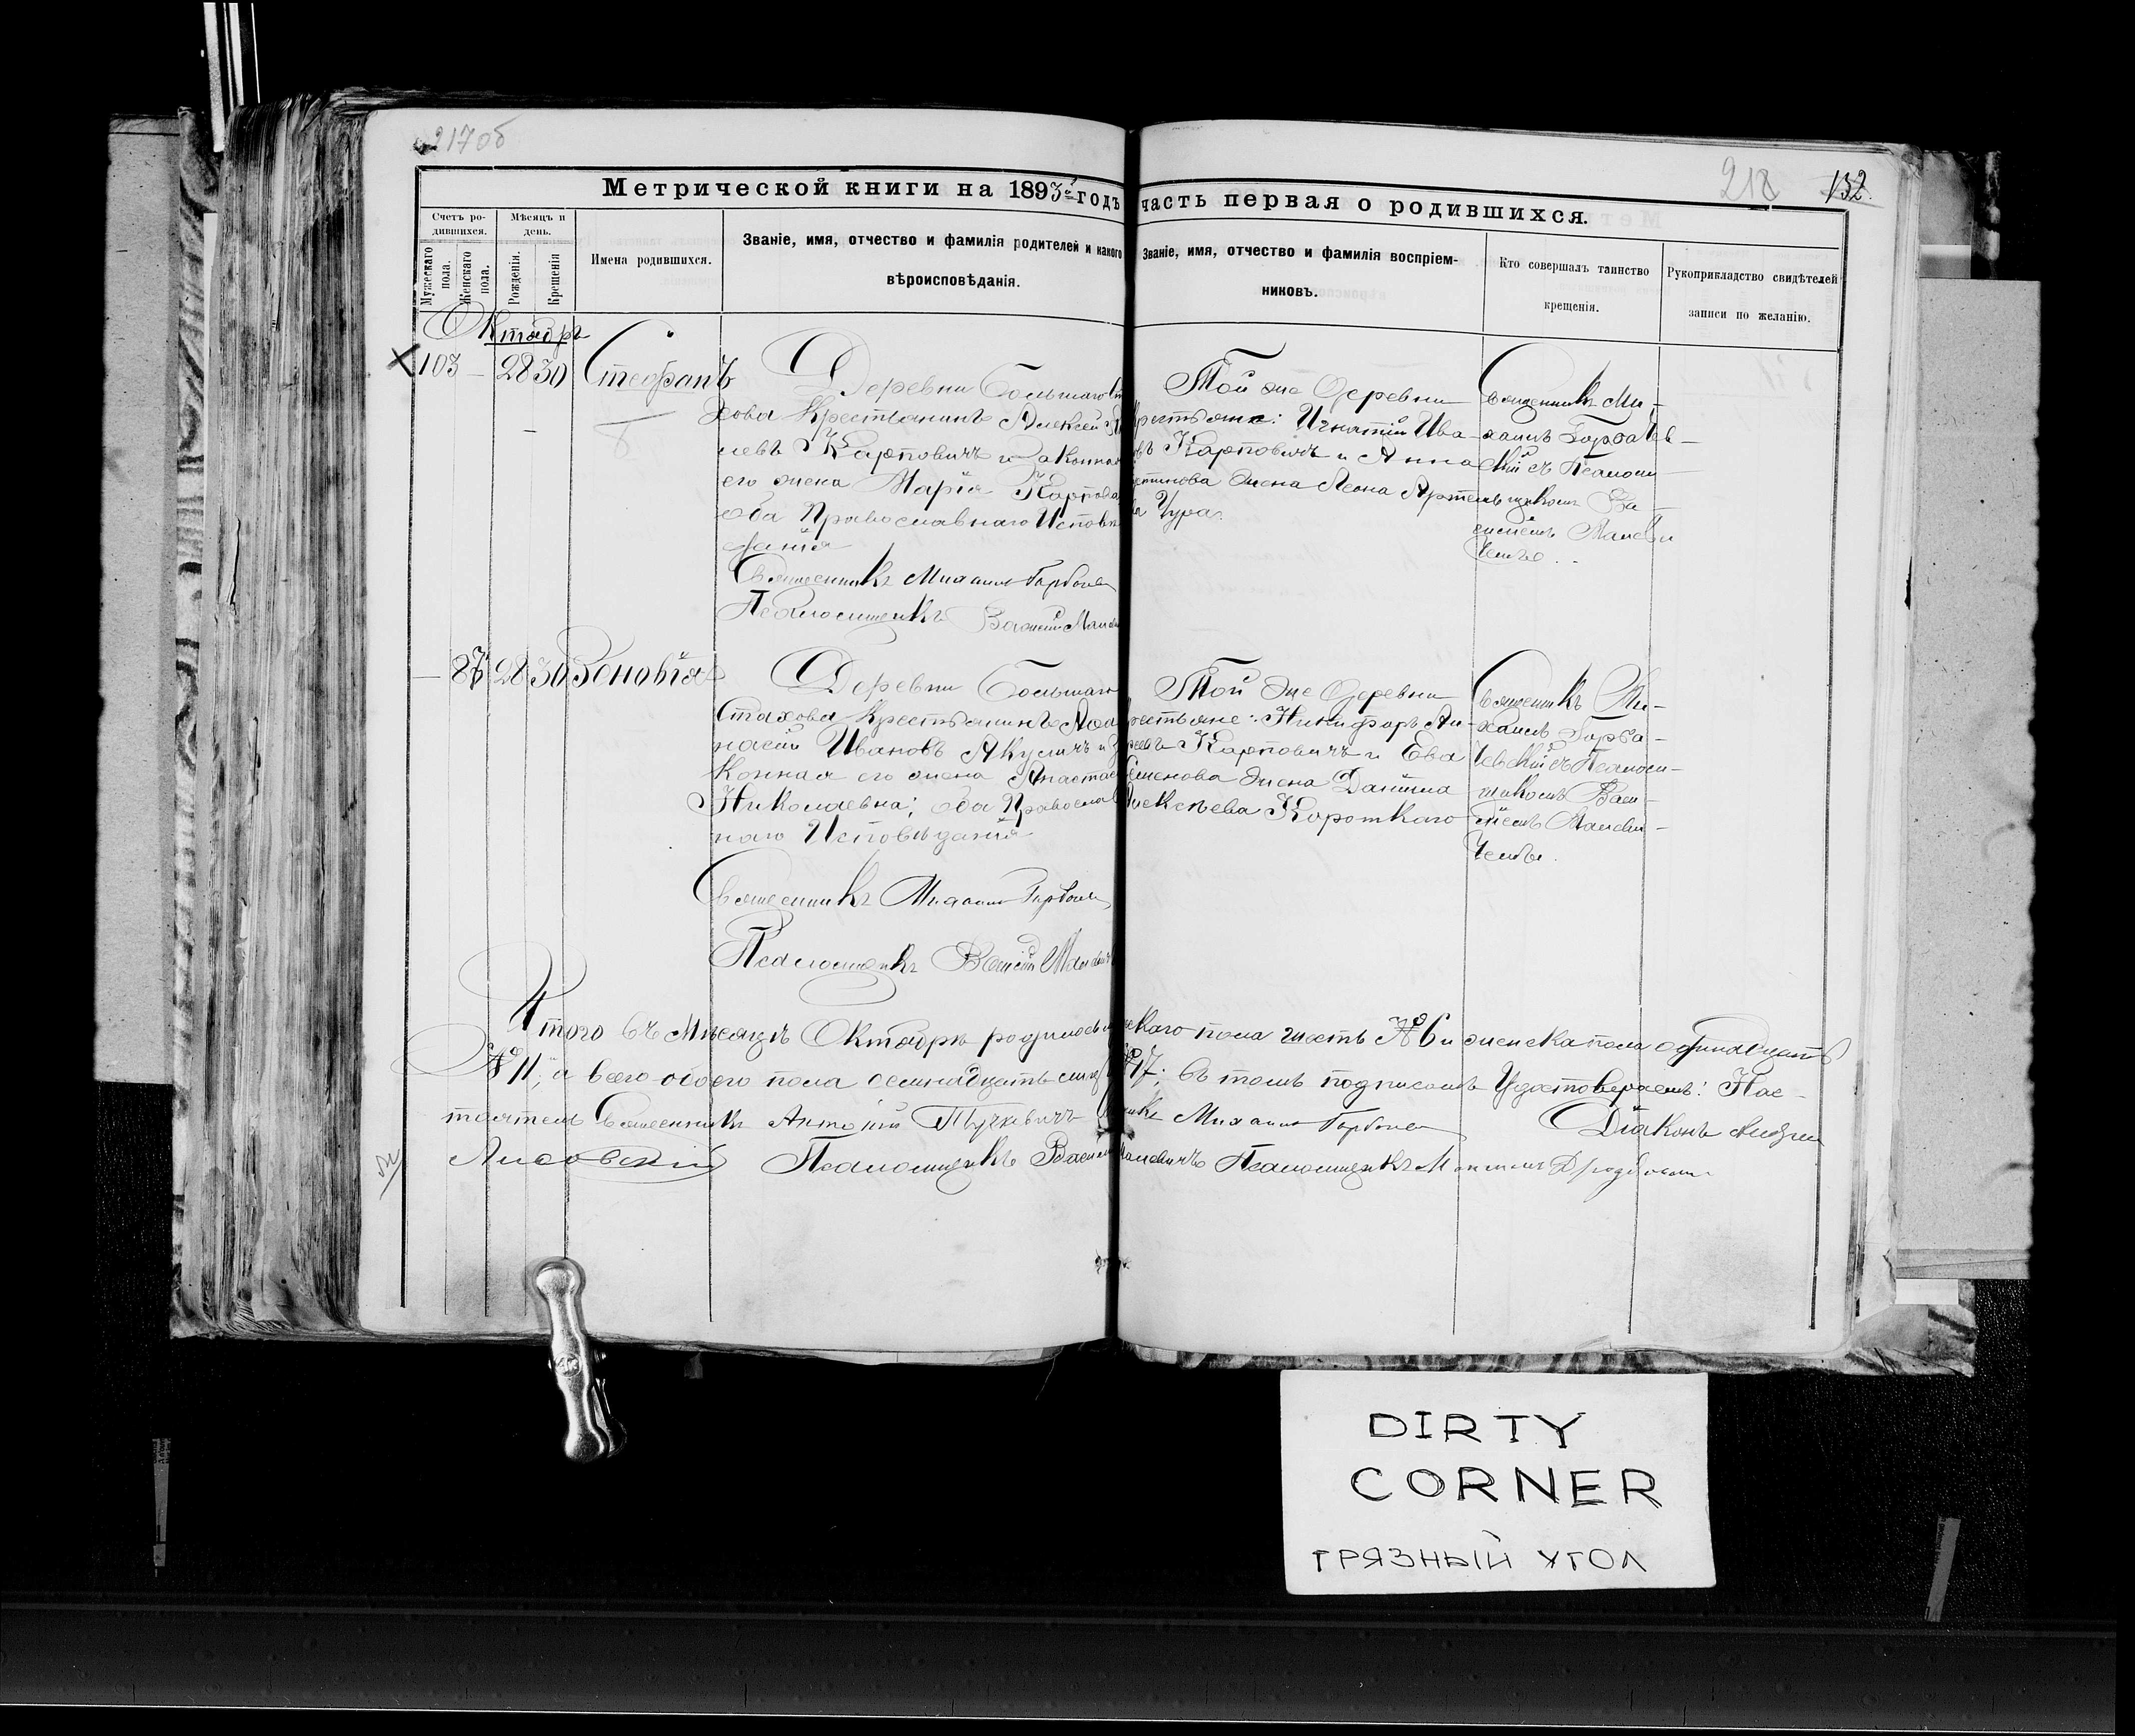 217об
218 132.
Метрической книги на 1893й годъ часть первая о родившихся.
Счетъ родившихся.
Мужескаго пола.
Женскаго пола.
Мѣсяцъ и день.
Рожденія.
Крещенія
Имена родившихся.
Званіе, имя, отчество и фамилія родителей и какого
вѣроисповѣданія.
Званіе, имя, отчество и фамилія воспріем-
никовъ.
Кто совершалъ таинство
крещенія.
Рукоприкладство свидѣтелей
записи по желанію.
Октябрь
103 – 28 30 Стефанъ
Деревни Большаго
хова Крестьянинъ Алексей
левъ Карповичъ и законная
его жена Марія
оба Православнаго Исповѣ
данія
Священникъ Михаилъ
Псаломщикъ Василій
Той же Деревни
Игнатій Ива-
въ Карповичъ и Анна
жена Леона Артемь
ва Чура.
Священникъ Ми-
хаилъ Горбачев-
скій съ Псаломщ
икомъ Ва-
силіемъ
— 87 28 30 Зеновія
Деревни Большаго
Стахова Крестьянинъ Афа
насій Ивановъ Акуличъ и За
конная его жена Анастас
Николаевна; оба Православ
наго Исповѣданія
Священникъ Михаилъ
Псаломщикъ Василій
Той же Деревни
рестьяне: Никифоръ Ан-
реевъ Карповичъ и Ева
Семенова жена Даніила
Алексѣева Короткаго
Священникъ Ми-
хаилъ Горба-
чевскій съ Псалом-
щикомъ Васи-
ліемъ
Итого въ Мѣсяцѣ Октябрѣ родилось мужескаго пола шесть № 6 и женска пола одинадцать
№ 11; а всего обоего пола семнадцать № 17; въ томъ подписомъ Удостоверяемъ: Нас-
тоятель Священникъ Антоній Михаилъ Діаконъ
Лисовскій Псаломщикъ Василій Псаломщикъ
DIRTY
CORNER
ГРЯЗНЫЙ УГОЛ